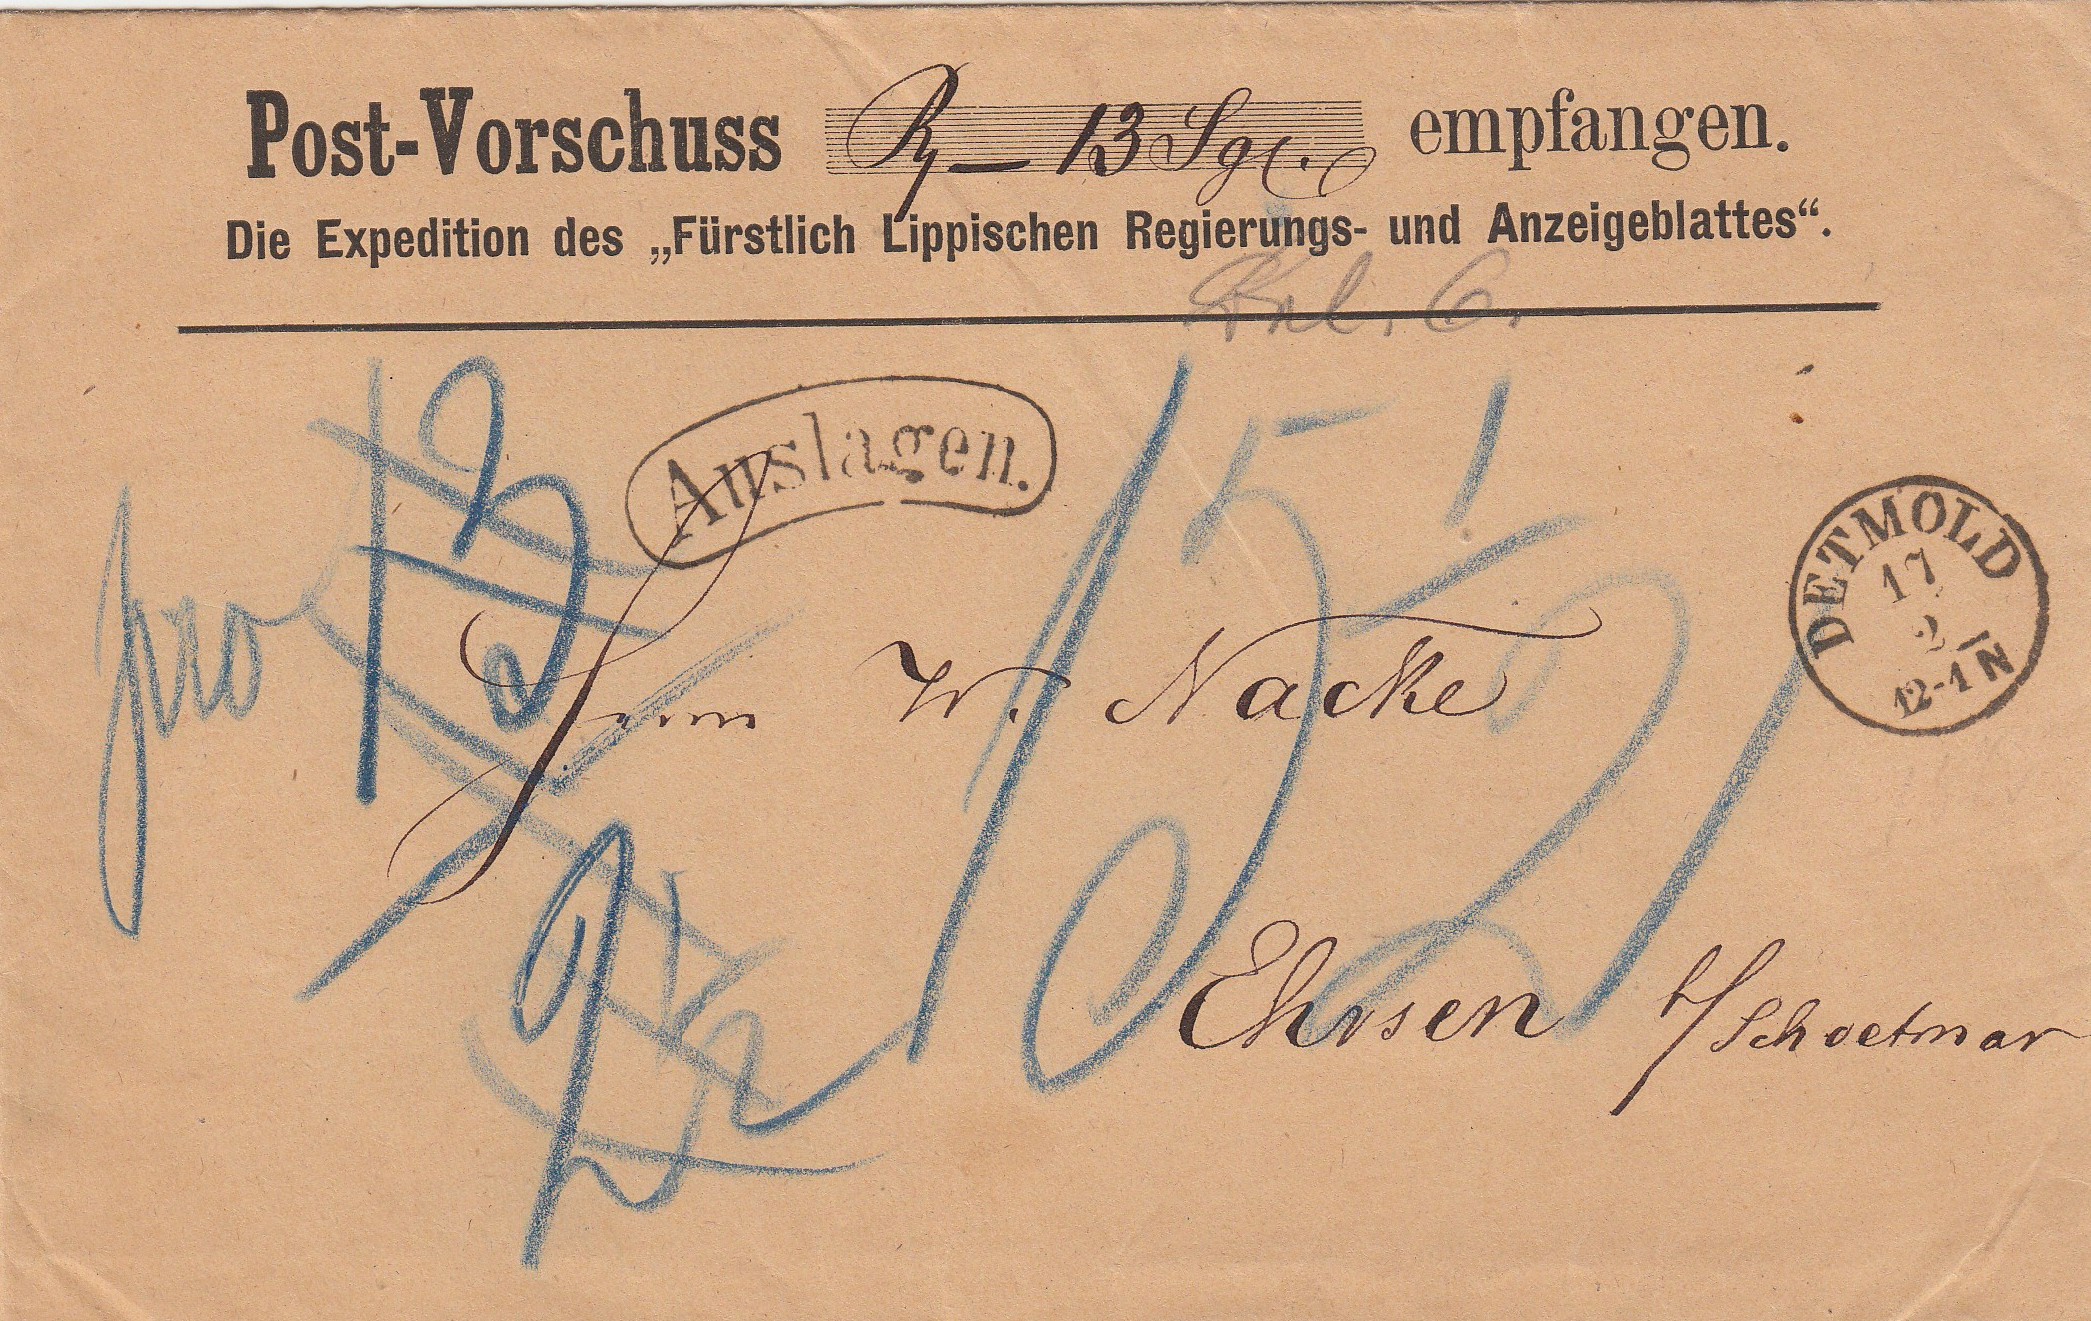 Post-Vorschuss — 13 Sgr. empfangen.
Die Expedition des „Fürstlich Lippischen Regierungs- und Anzeigeblattes“.
Auslagen.
pro
13
15½
DETMOLD
17
2
12-1 N
Herrn W. Nacke
Ehrsen b/Schoetmar